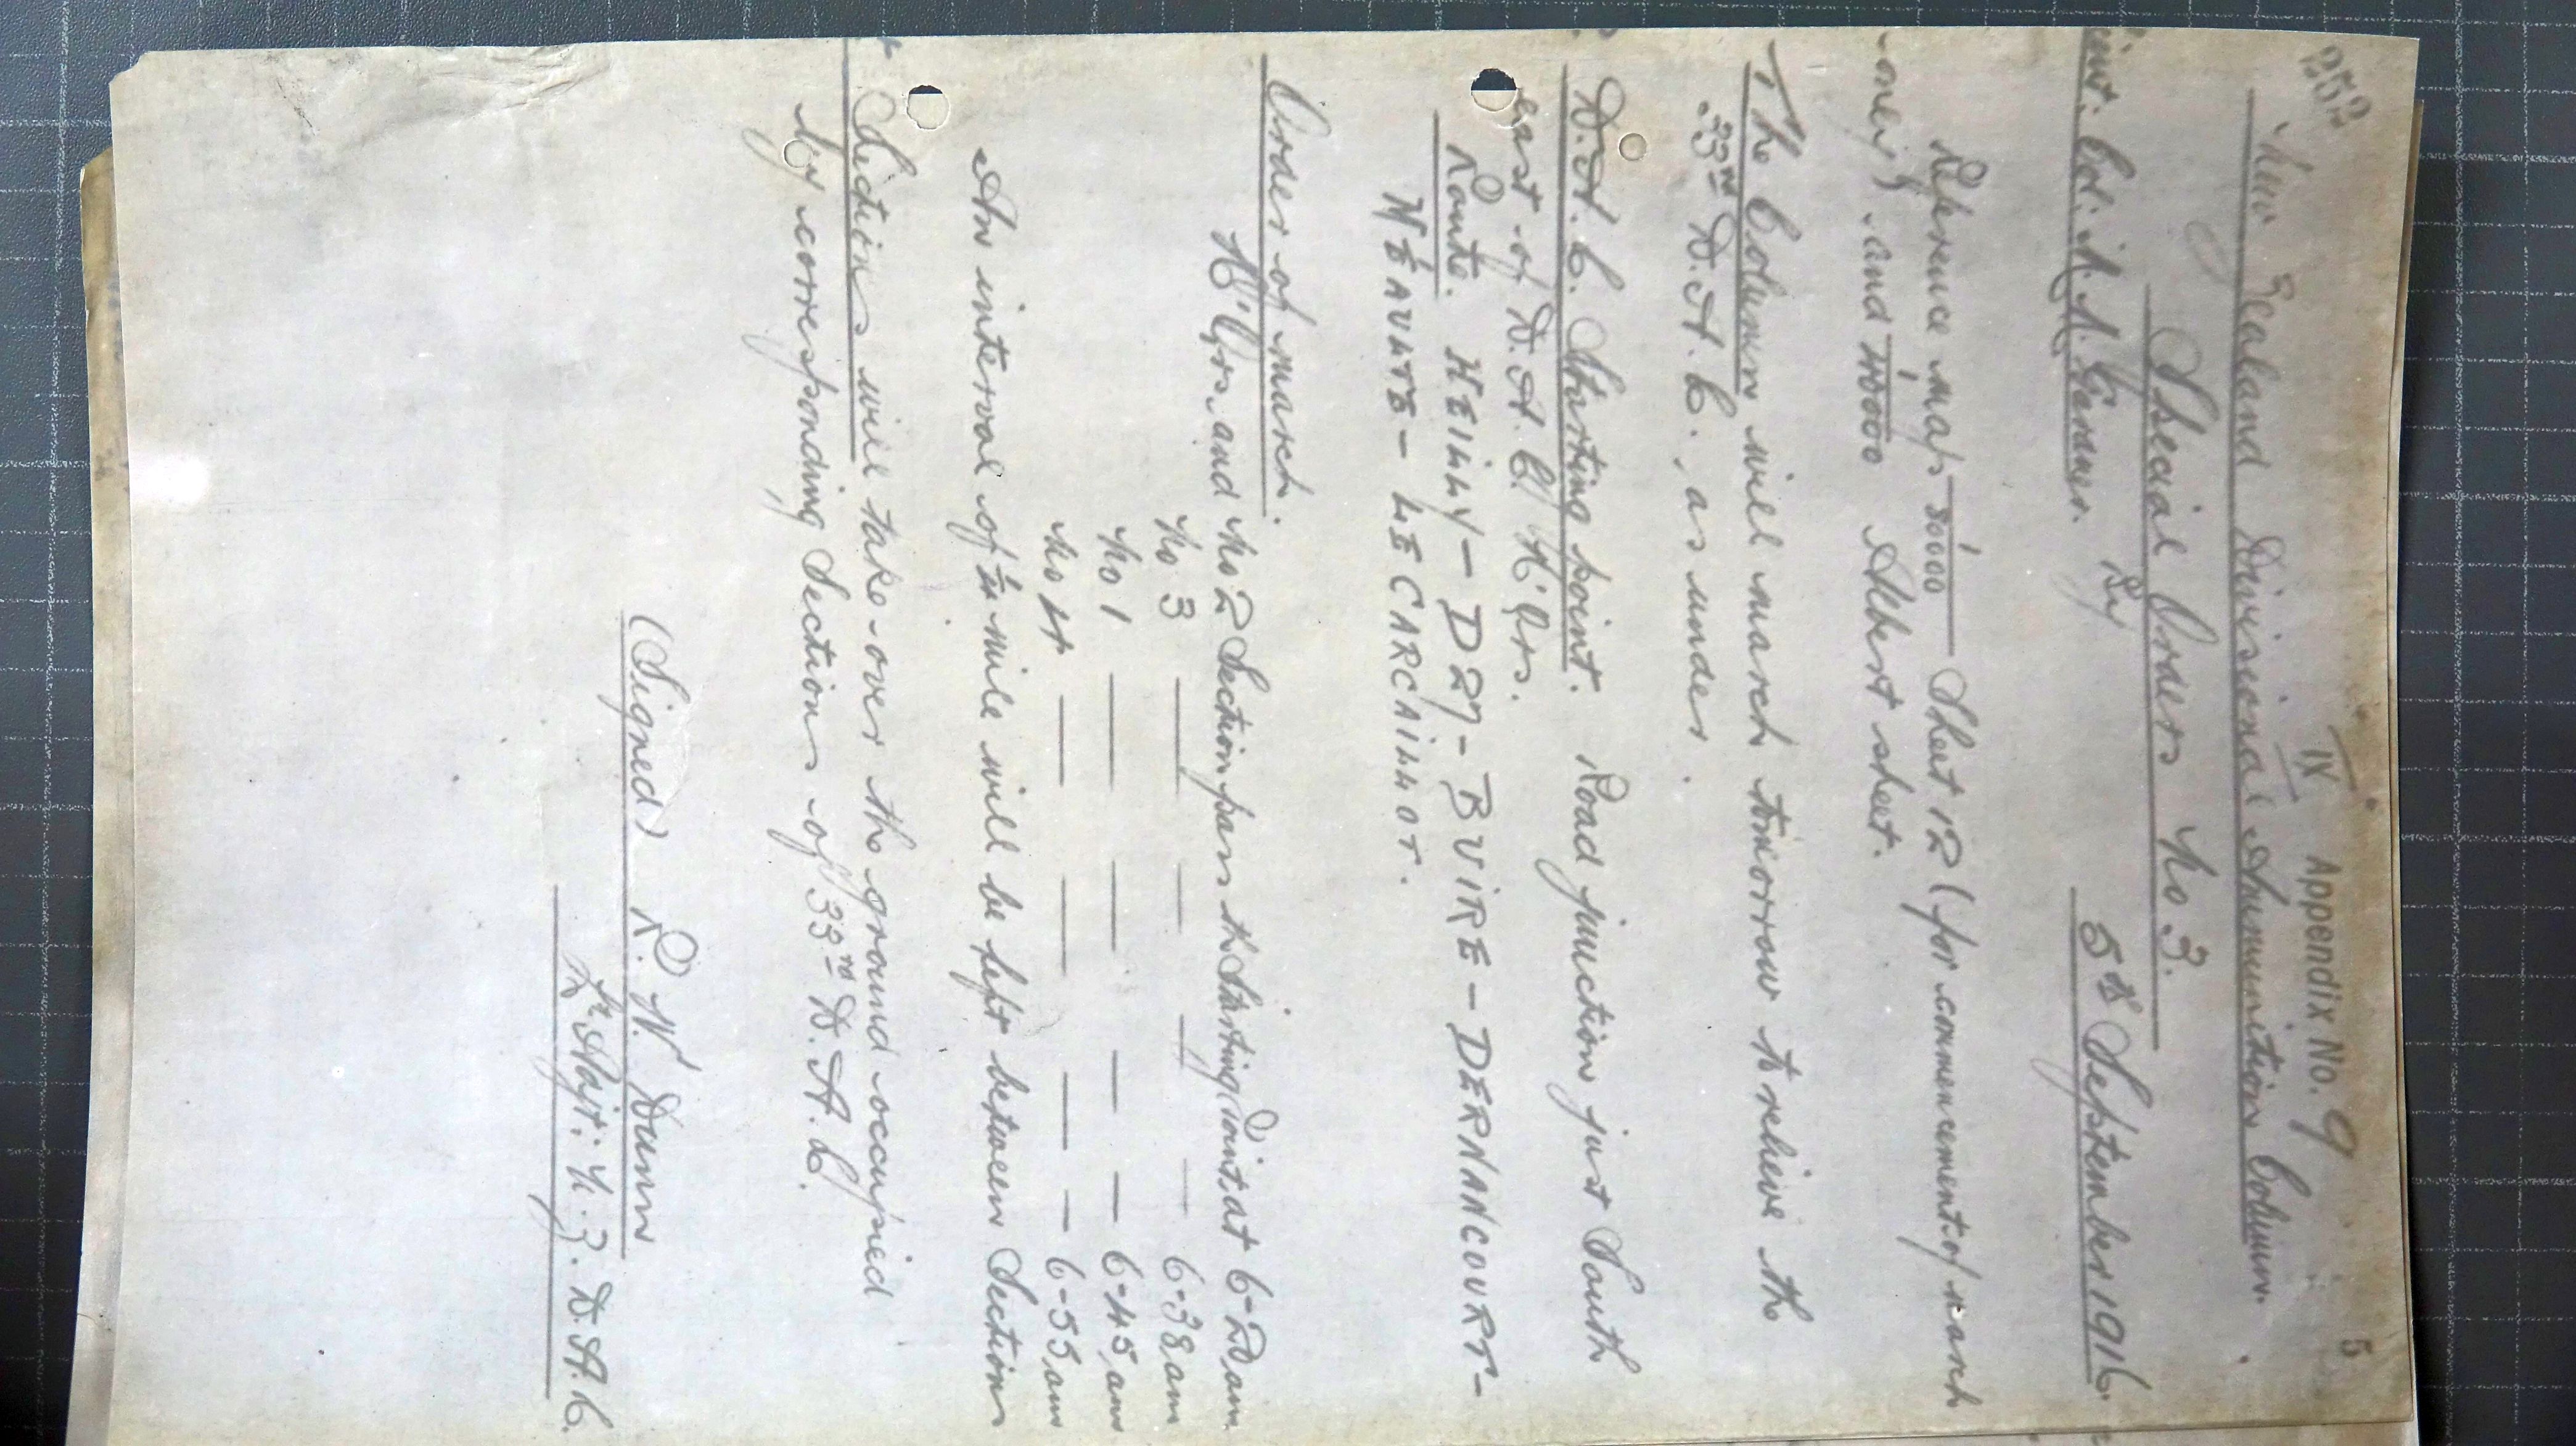 252
IX Appendix No. 9
5
New Zealand Divisional Ammunition Column.
Special Orders No 3.
By
Lieut. Col. R. R. Gardner.
5th September 1916.
Reference Map 1/80000 Sheet 12 (for commencement of march
only) and 1/40000 Albert sheet.
The Column will march tomorrow to relieve the
33rd D.A.C., as under.
D.A.C. Starting point. Road junction just South
East of D.A.C. H'Qrs.
Route. HEILLY - D27 - BUIRE - DERNANCOURT -
MÉAULTE - LE CARCAILLOT.
Order of march.
H'Qrs. and No 2 Section pass the Starting Point at 6-20 am
No 3 — — — — 6-38, am
No 1 — — — — 6-45, am
No 4 — — — — 6-55, am
An interval of 1/4 mile will be kept between Sections
Sections will take over the ground occupied
by corresponding Sections of 33rd D.A.C.
(Signed) R. W. Dunn
Lt
Adjt: N.Z.D.A.C.